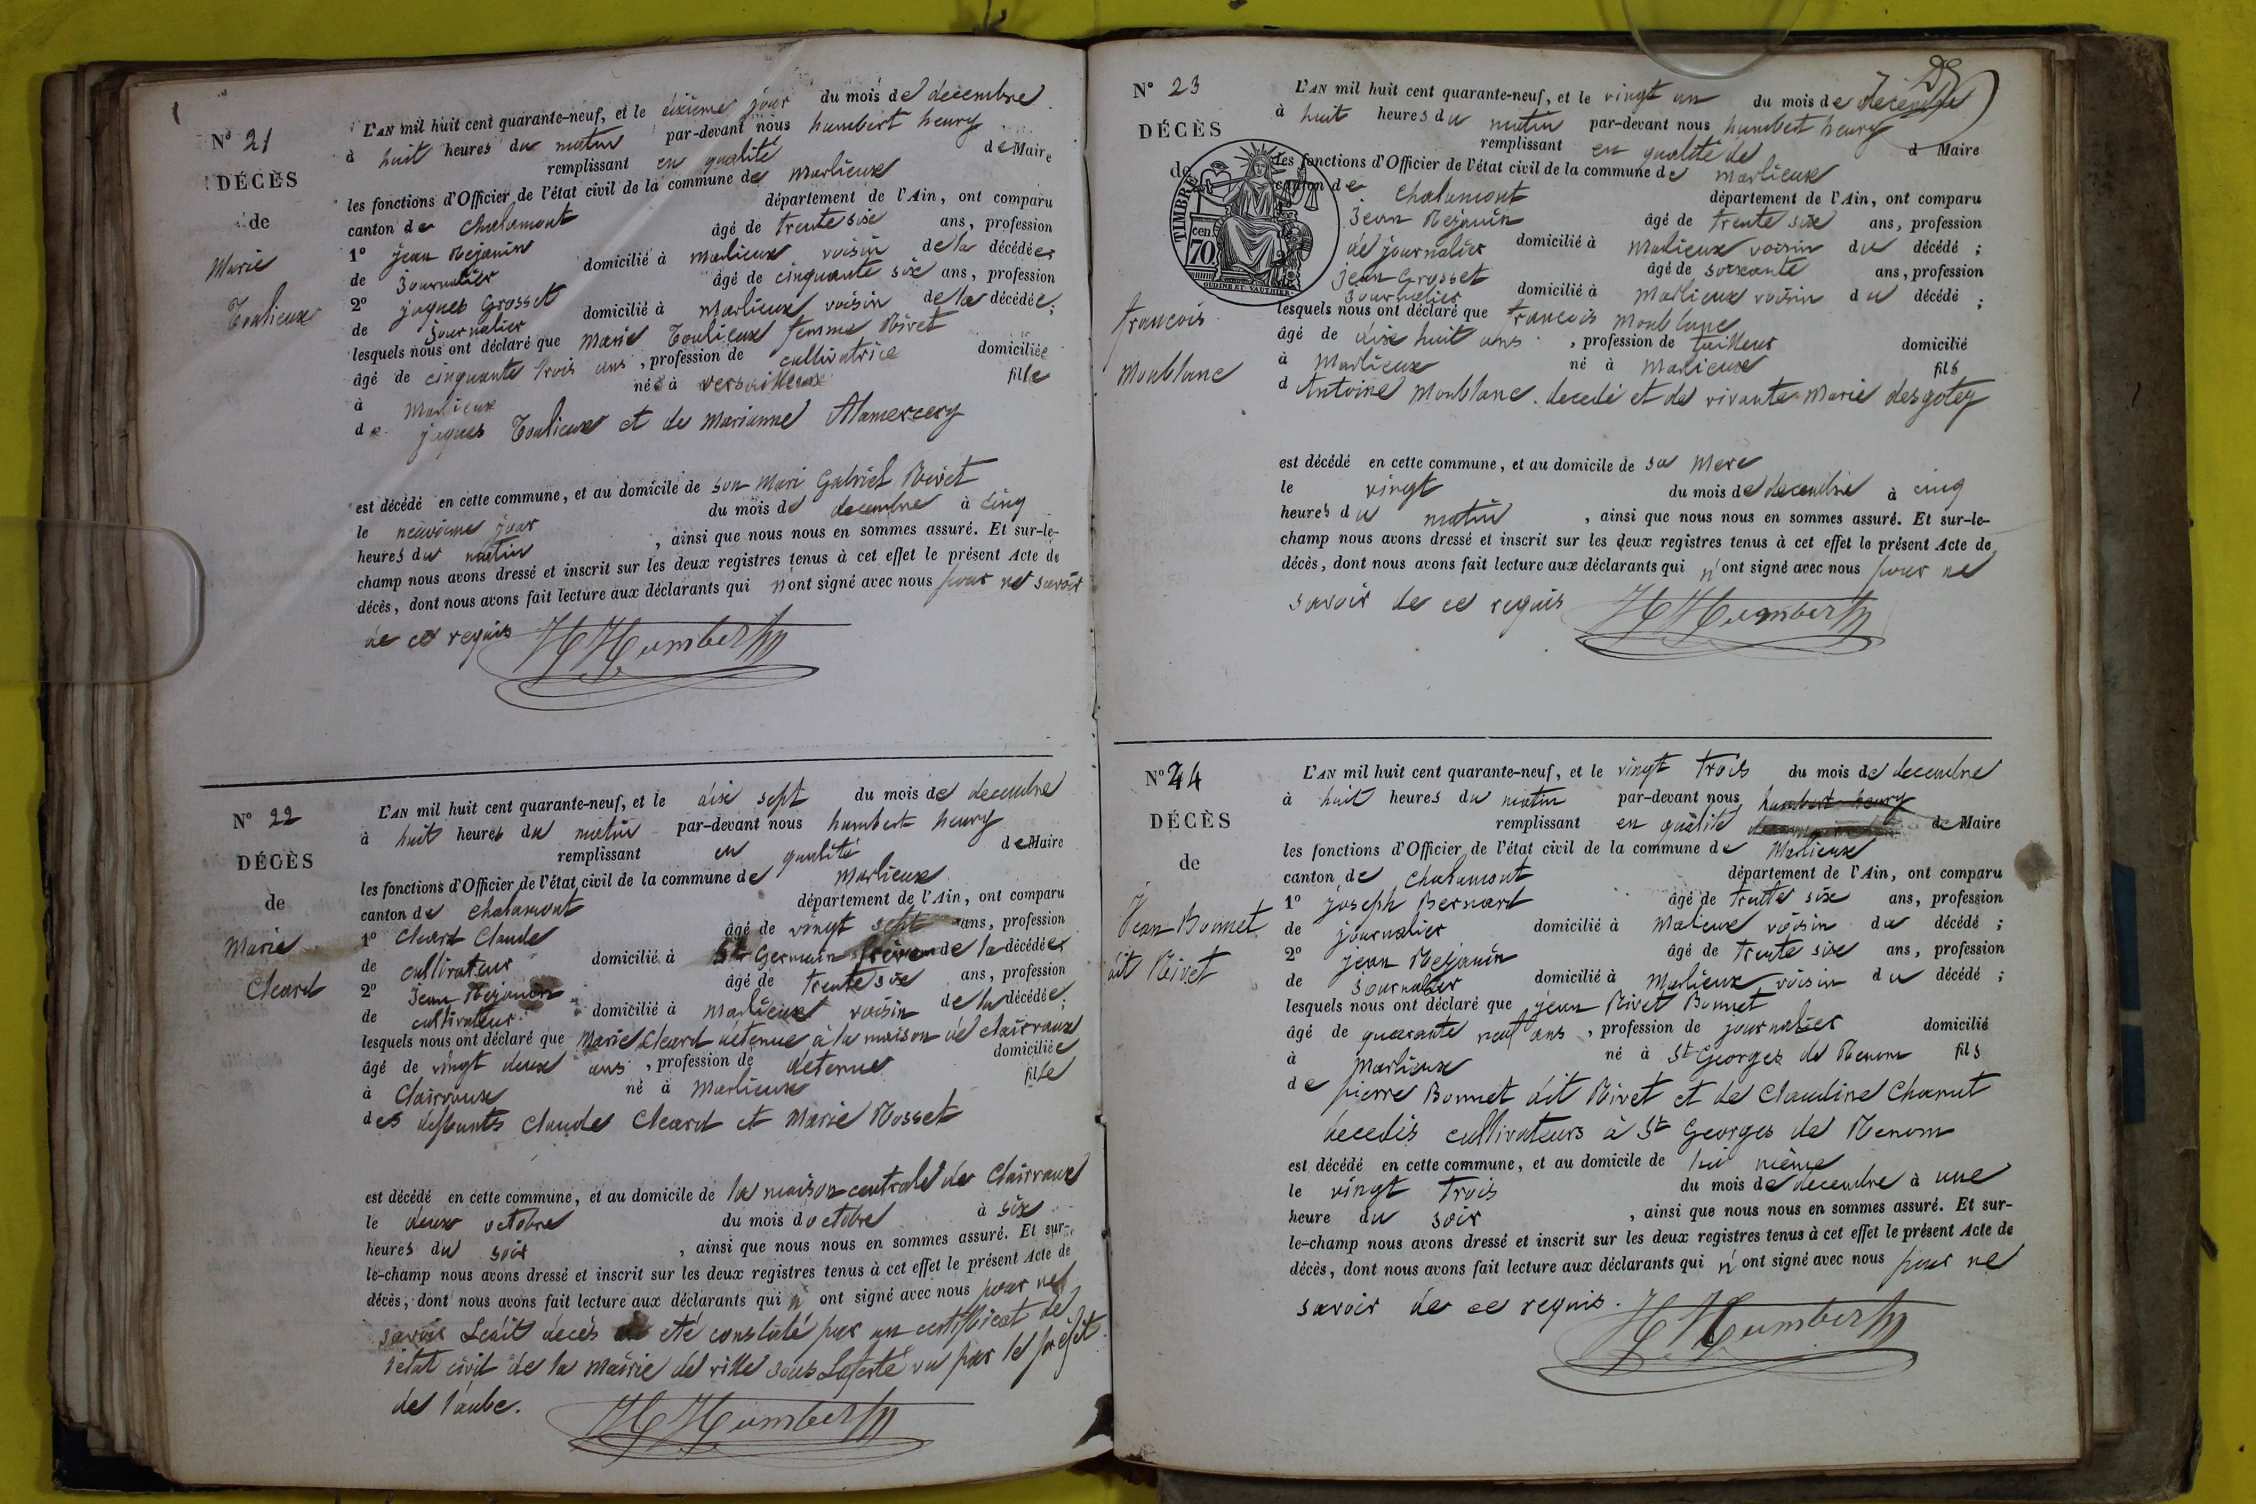 N° 21
DÉCÈS
de
Marie
Toulieux
L'AN mil huit cent quarante-neuf, et le dixieme jour du mois de decembre
à huit heures du matin par-devant nous humbert henry
remplissant en qualité de Maire
les fonctions d'Officier de l'état civil de la commune de Marlieux
canton de Chalamont département de l'Ain, ont comparu
1° jean Rejanin âgé de trente six ans, profession
de Journalier domicilié à marlieux voisin de la décédée
2° jaques Grosset âgé de cinquante six ans, profession
de journalier domicilié à Marlieux voisin de la décédée;
lesquels nous ont déclaré que Marie Toulieux femme Rivet
âgé de cinquante trois ans, profession de cultivatrice domiciliée
à Marlieux née à versailleux fille
de jaques Toulieux et de Marianne Alamercery
est décédé en cette commune, et au domicile de son Mari Gabriel Rivet
le neuvieme jour du mois de decembre à cinq
heures du matin, ainsi que nous nous en sommes assuré. Et sur-le-
champ nous avons dressé et inscrit sur les deux registres tenus à cet effet le présent Acte de
décès, dont nous avons fait lecture aux déclarants qui n'ont signé avec nous pour ne savoir
de ce requis H Humbert
N° 22
DÉCÈS
de
Marie
Cleard
L'AN mil huit cent quarante-neuf, et le dix sept du mois de decembre
à huit heures du matin par-devant nous humbert henry
remplissant en qualité de Maire
les fonctions d'Officier de l'état civil de la commune de Marlieux
canton de Chalamont département de l'Ain, ont comparu
1° Cleard Claude âgé de vingt sept ans, profession
de cultivateur domicilié à St Germain de la décédée
2° Jean Rejanin âgé de trente six ans, profession
de cultivateur domicilié à Marlieux voisin de la décédée;
lesquels nous ont déclaré que Marie Cleard détenue à la maison de Clairvaux
âgé de vingt deux ans, profession de détenue domiciliée
à Clairvaux né à Marlieux fille
des deffunts Claude Cleard et Marie Rosset
est décédé en cette commune, et au domicile de la maison centrale de Clairvaux
le deux octobre du mois d'octobre à six
heures du soir, ainsi que nous nous en sommes assuré. Et sur-
le-champ nous avons dressé et inscrit sur les deux registres tenus à cet effet le présent Acte de
décès, dont nous avons fait lecture aux déclarants qui n'ont signé avec nous pour ne
savoir Ledit décès a eté constaté par un certifficat de
l'état civil de la Mairie de ville sous Laferté vu par le préfet
de l'aube. H Humbert
N° 23
DÉCÈS
de
francois
Monblanc
TIMBRE
cen
70
OUDINÉ ET VAUTHIER
L'AN mil huit cent quarante-neuf, et le vingt un du mois de decembre
à huit heures du matin par-devant nous humbert henry
remplissant en qualité de d Maire
les fonctions d'Officier de l'état civil de la commune de Marlieux
canton de Chalamont département de l'Ain, ont comparu
Jean Rejanin âgé de trente six ans, profession
de journalier domicilié à Marlieux voisin du décédé;
jean Grosset âgé de soixante ans, profession
Journalier domicilié à Marlieux voisin du décédé;
lesquels nous ont déclaré que francois Monblanc
âgé de dix huit ans, profession de tailleur domicilié
à Marlieux né à Marlieux fils
d'Antoine Monblanc decedé et de vivante Marie desgotey
est décédé en cette commune, et au domicile de sa Mere
le vingt du mois de decembre à cinq
heures du matin, ainsi que nous nous en sommes assuré. Et sur-le-
champ nous avons dressé et inscrit sur les deux registres tenus à cet effet le présent Acte de
décès, dont nous avons fait lecture aux déclarants qui n'ont signé avec nous pour ne
savoir de ce requis H Humbert
N° 24
DÉCÈS
de
Jean Bonnet
dit Rivet
L'AN mil huit cent quarante-neuf, et le vingt trois du mois de decembre
à huit heures du matin par-devant nous humbert henry
remplissant en qualité de Maire
les fonctions d'Officier de l'état civil de la commune de Marlieux
canton de Chalamont département de l'Ain, ont comparu
1° joseph Bernard âgé de trente six ans, profession
de journalier domicilié à Malieux voisin du décédé;
2° jean Rejanin âgé de trente six ans, profession
de Journalier domicilié à Marlieux voisin du décédé;
lesquels nous ont déclaré que jean Rivet Bonnet
âgé de quarante neuf ans, profession de journalier domicilié
à Marlieux né à St Georges de Renom fils
de pierre Bonnet dit Rivet et de Claudine Chanut
decedés cultivateurs à St Georges de Renom
est décédé en cette commune, et au domicile de lui même
le vingt trois du mois de decembre à une
heure du soir, ainsi que nous nous en sommes assuré. Et sur-
le-champ nous avons dressé et inscrit sur les deux registres tenus à cet effet le présent Acte de
décès, dont nous avons fait lecture aux déclarants qui n'ont signé avec nous pour ne
savoir de ce requis. H Humbert